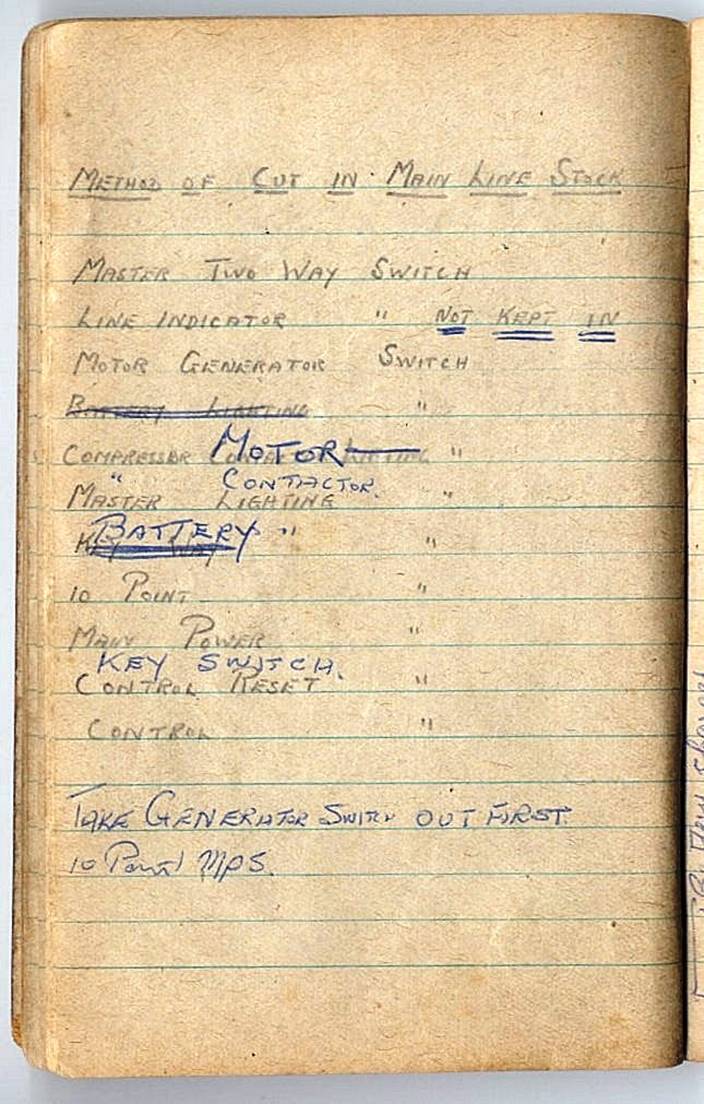 METHOD OF CUT IN MAIN LINE STOCK
MASTER TWO WAY SWITCH
LINE INDICATOR " NOT KEPT IN
MOTOR GENERATOR SWITCH
BATTERY LIGHTING "
COMPRESSOR MOTOR "
" CONTACTOR.
MASTER LIGHTING "
BATTERY "
KEY WAY "
10 POINT "
MAIN POWER "
KEY SWITCH.
CONTROL RESET "
CONTROL "
TAKE GENERATOR SWITCH OUT FIRST.
10 Point MPS.